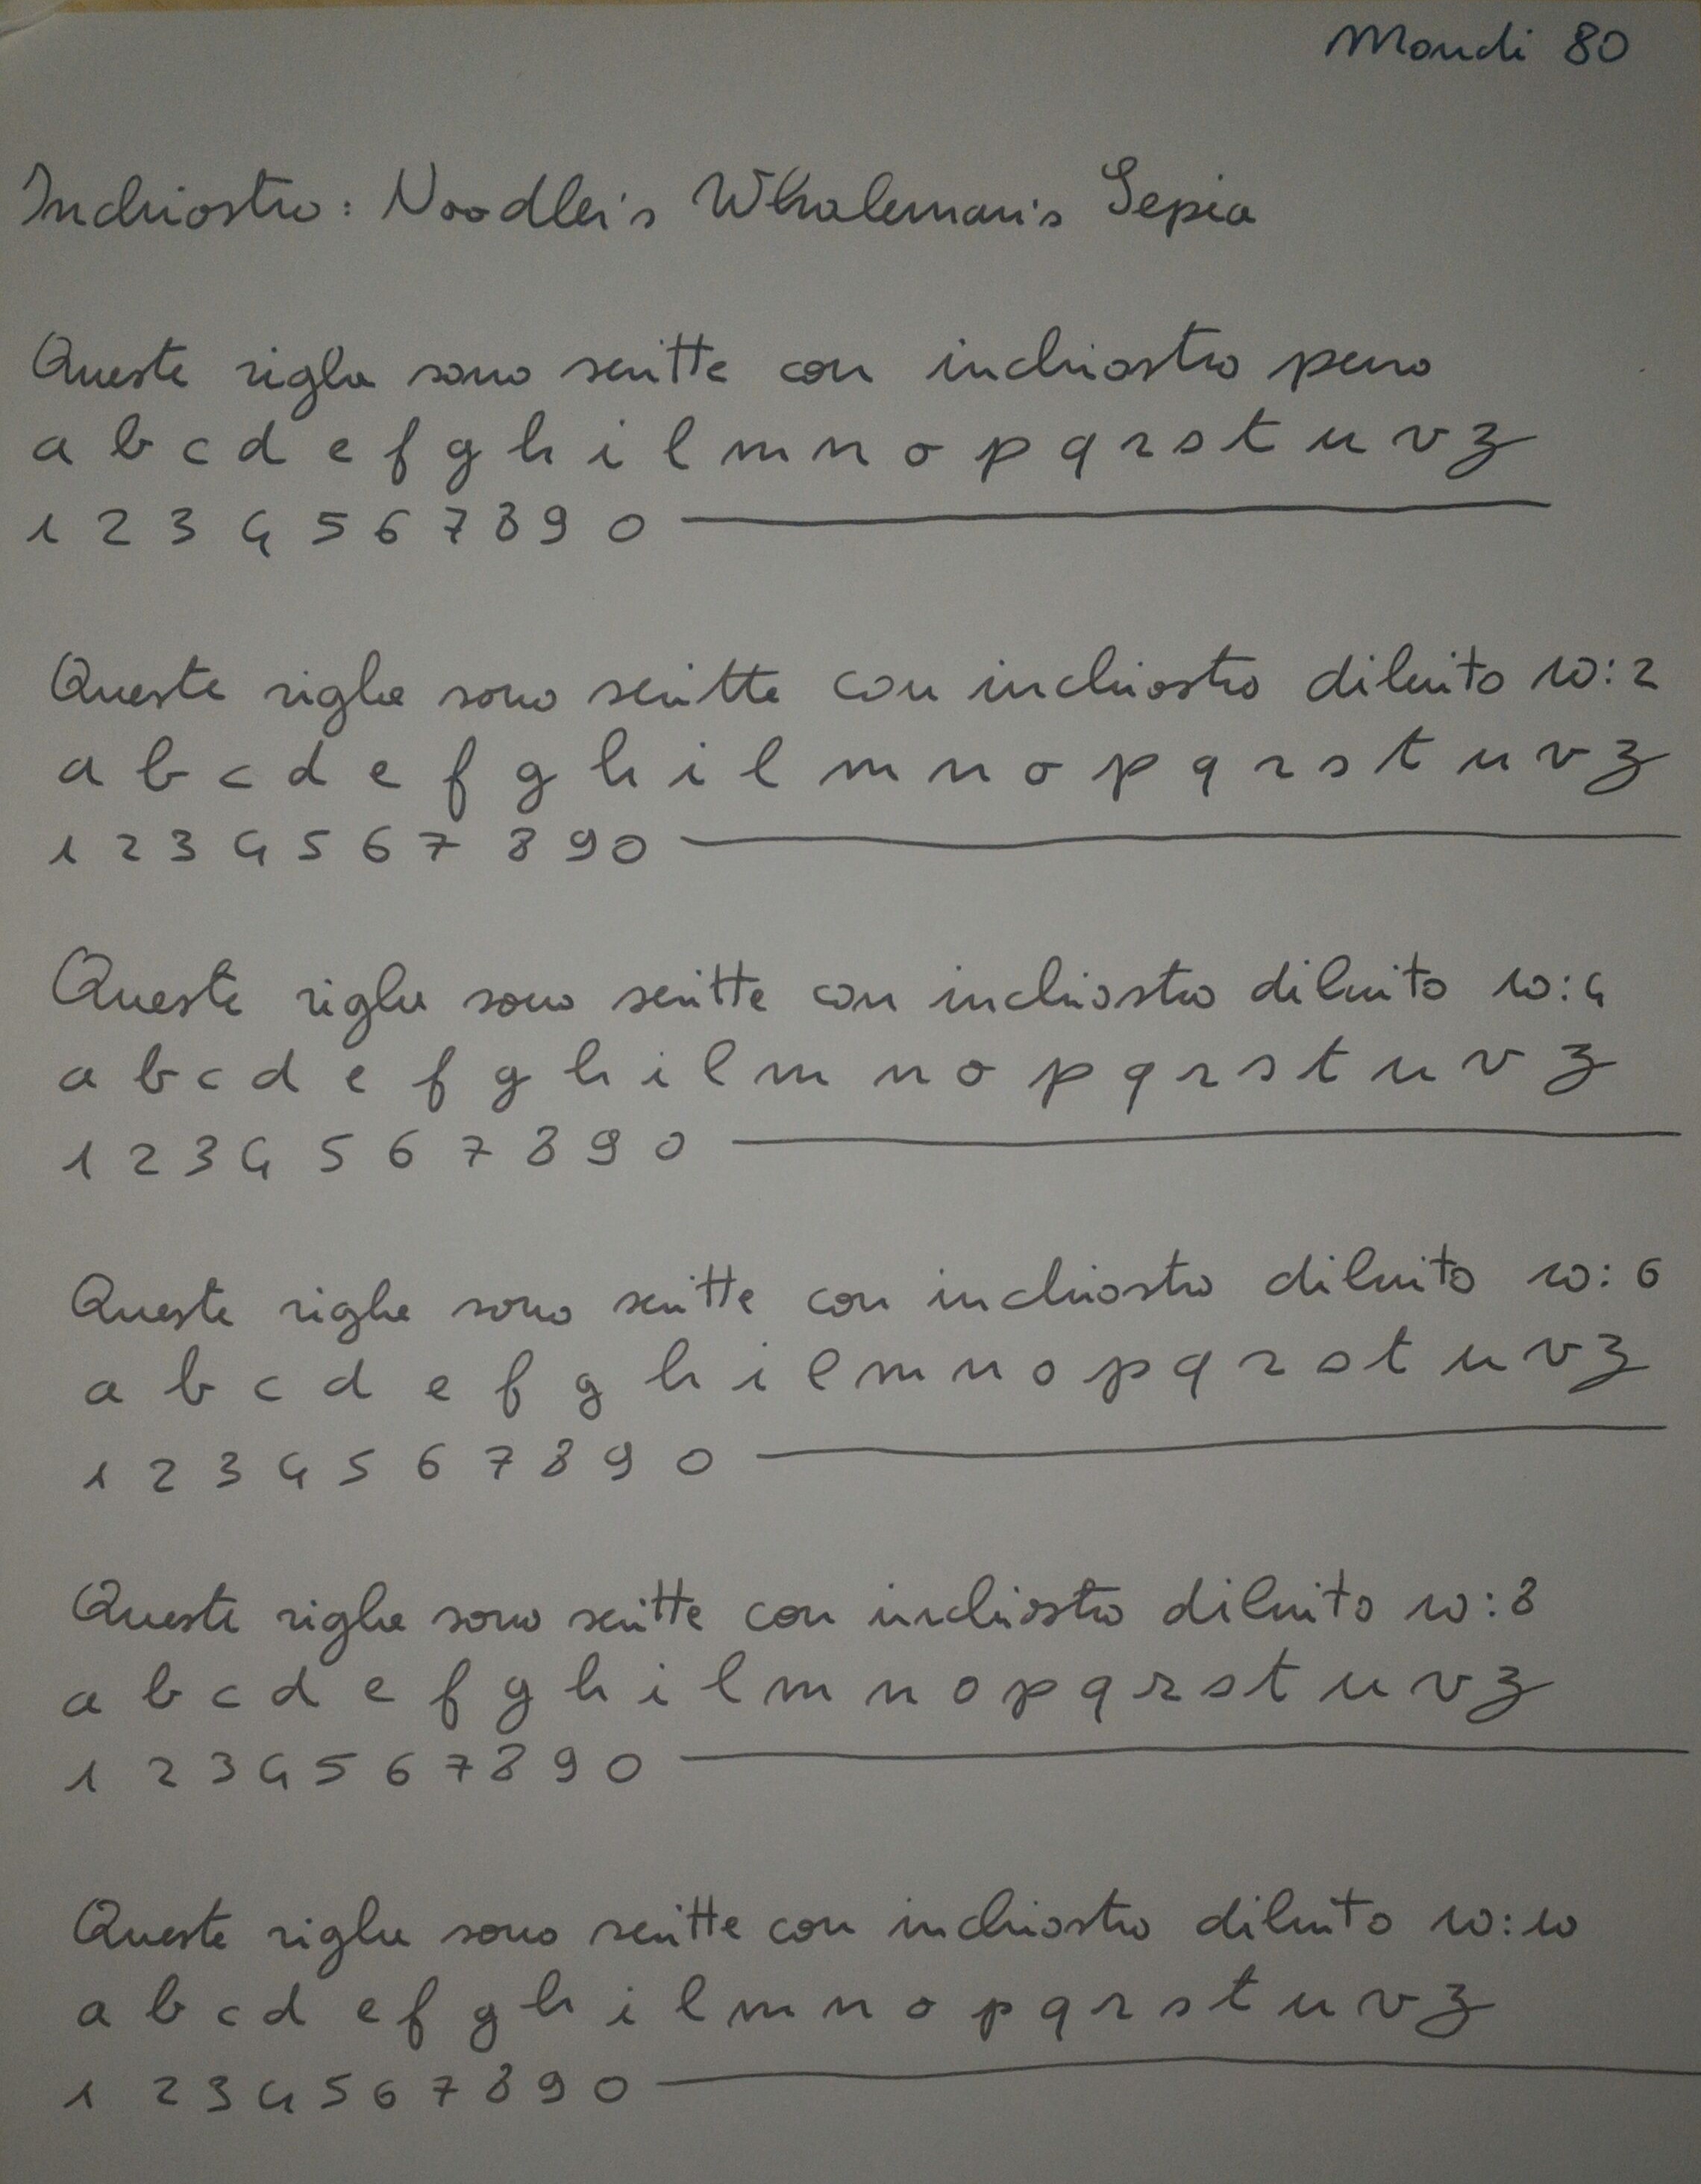 Mondi 80
Inchiostro: Noodler's Whaleman's Sepia
Queste righe sono scritte con inchiostro puro
a b c d e f g h i l m n o p q r s t u v z
1 2 3 4 5 6 7 8 9 0
Queste righe sono scritte con inchiostro diluito 10:2
a b c d e f g h i l m n o p q r s t u v z
1 2 3 4 5 6 7 8 9 0
Queste righe sono scritte con inchiostro diluito 10:4
a b c d e f g h i l m n o p q r s t u v z
1 2 3 4 5 6 7 8 9 0
Queste righe sono scritte con inchiostro diluito 10:6
a b c d e f g h i l m n o p q r s t u v z
1 2 3 4 5 6 7 8 9 0
Queste righe sono scritte con inchiostro diluito 10:8
a b c d e f g h i l m n o p q r s t u v z
1 2 3 4 5 6 7 8 9 0
Queste righe sono scritte con inchiostro diluito 10:10
a b c d e f g h i l m n o p q r s t u v z
1 2 3 4 5 6 7 8 9 0